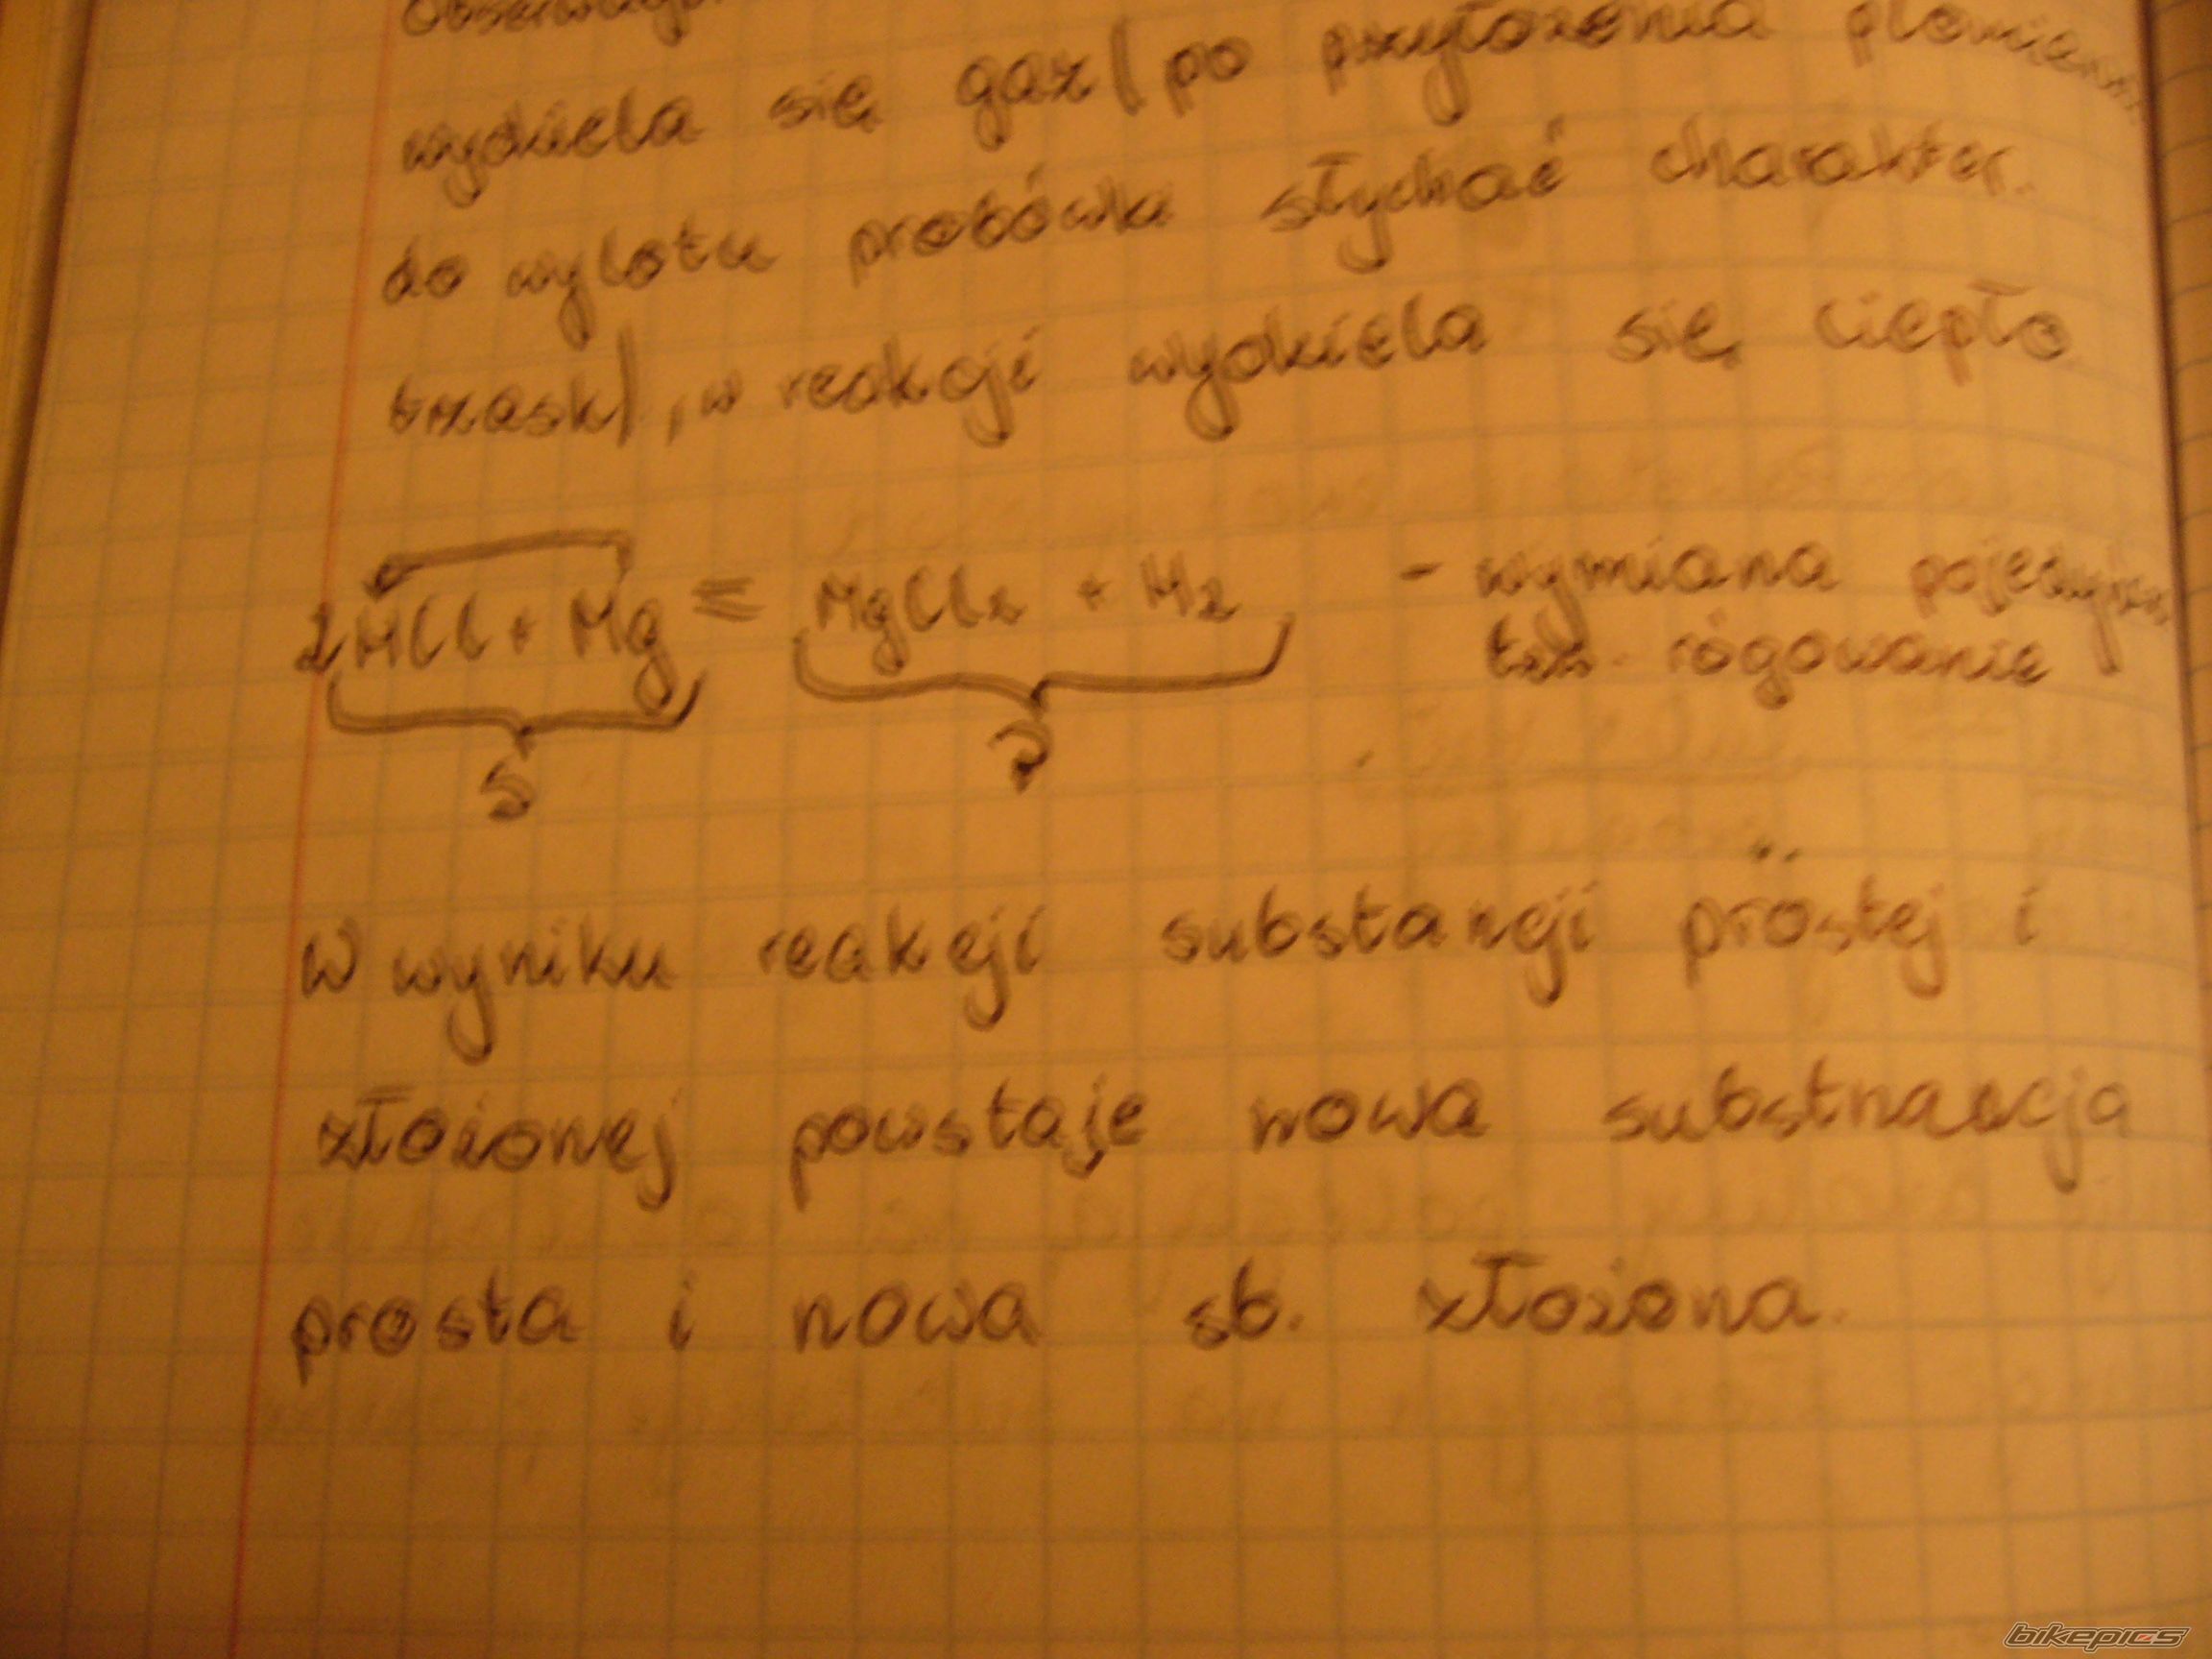 Obserwacje
wydziela się gaz/po przyłożenia płomienia
do wylotu probówki słychać charakter.
trzask/, w reakcji wydziela się ciepło
2HCl + Mg = MgCl₂ + H₂ - wymiana pojedyńcza
tzw. rógowanie
S
P
W wyniku reakcji substancji prostej i
złożonej powstaje nowa substnancja
prosta i nowa sb. złożona.
bikepics